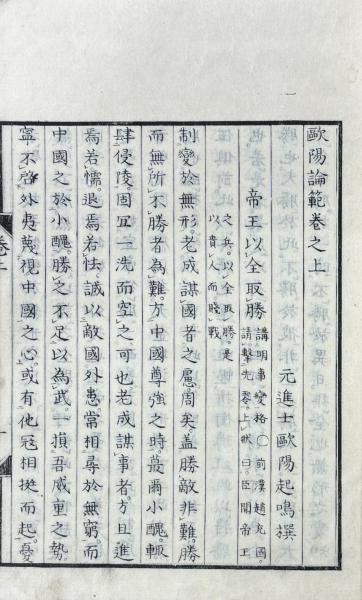 歐陽論範卷之上
元進士歐陽起鳴撰
帝王以全取勝 講明事變格〇前漢趙充國
請擊先零上狀曰臣聞帝王
之兵以全取勝是
以貴人而賤戰
制變於無形老成謀國者之慮周矣蓋勝敵非難勝
而無所不勝者為難方中國尊強之時蕞爾小醜輒
肆侵陵固宜一洗而空之可也老成謀事者方且進
焉若懦退焉若怯誠以敵國外患常相尋於無窮而
中國之於小醜勝之不足以為武一損吾威重之勢
寧不啓外夷蔑視中國之心或有他寇相挺而起憂